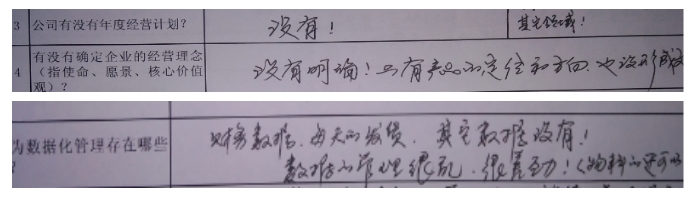 3 公司有没有年度经营计划? 没有! 其它领域!
有没有确定企业的经营理念
4 (指使命、愿景、核心价值 没有明确!只有产品的定位和方向,也没形成
观)?
为数据化管理存在哪些 财务数据,每天的发货,其它数据没有!
数据的管理很乱,很差劲!(物料的还可以